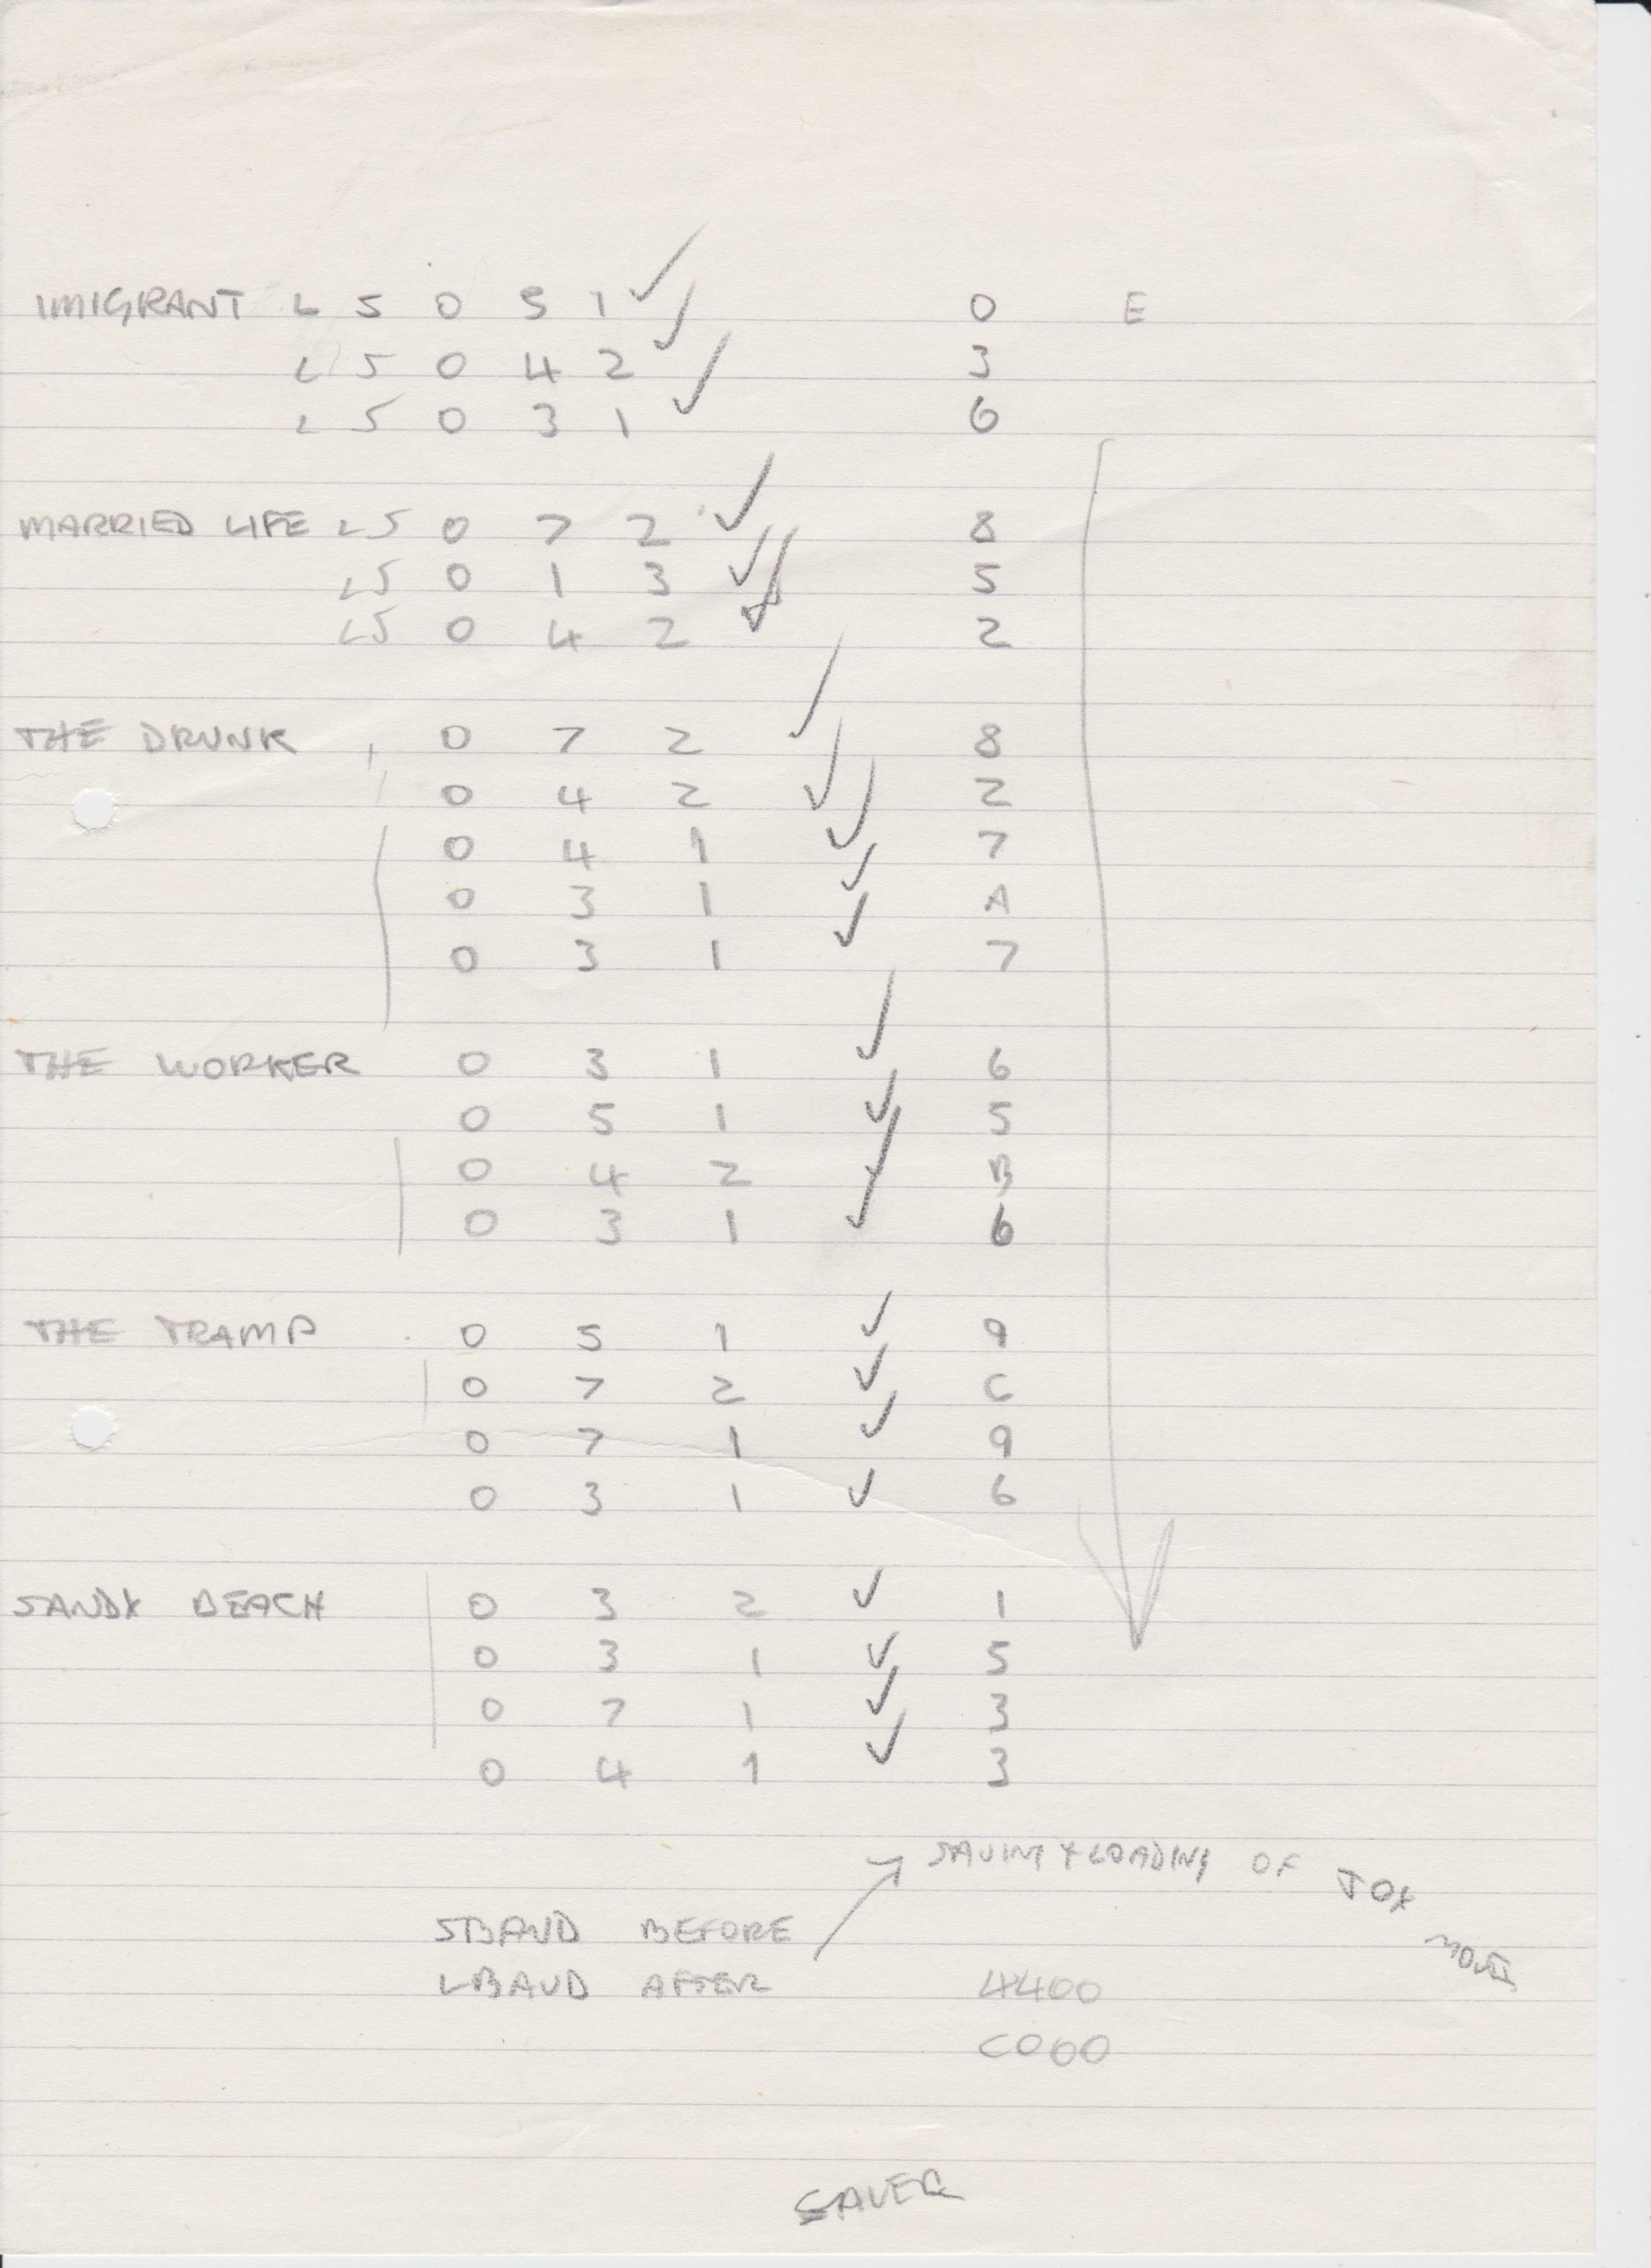 IMIGRANT L 5 0 5 1 ✓ 0 E
L 5 0 4 2 ✓ 3
L 5 0 3 1 ✓ 6
MARRIED LIFE L5 0 7 2 ✓ 8
L5 0 1 3 ✓ 5
L5 0 4 2 ✓ 2
THE DRUNK 0 7 2 ✓ 8
0 4 2 ✓ 2
0 4 1 ✓ 7
0 3 1 ✓ A
0 3 1 ✓ 7
THE WORKER 0 3 1 ✓ 6
0 5 1 ✓ 5
0 4 2 ✓ B
0 3 1 ✓ 6
THE TRAMP 0 5 1 ✓ 9
0 7 2 ✓ C
0 7 1 ✓ 9
0 3 1 ✓ 6
SANDY BEACH 0 3 2 ✓ 1
0 3 1 ✓ 5
0 7 1 ✓ 3
0 4 1 ✓ 3
SAVING + LOADING OF JOY
SBAUD BEFORE
LBAUD AFTER 4400
C000
SAVER